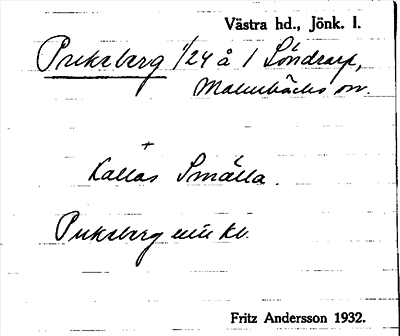 Västra hd., Jönk. l.
Puksberg 1/24 å 1 Söndrarp,
Malmbäcks sn.
+
Kallas Smälla.
Puksberg
Fritz Andersson 1932.